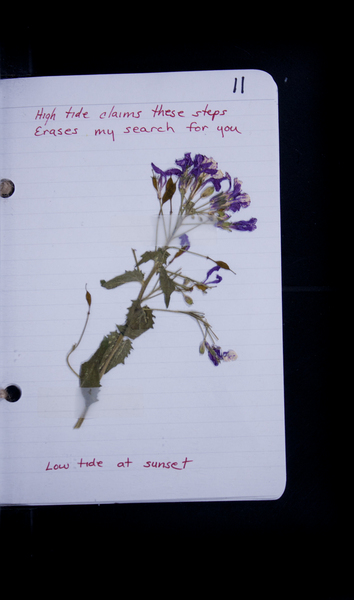 11
High tide claims these steps
Erases my search for you
Low tide at sunset